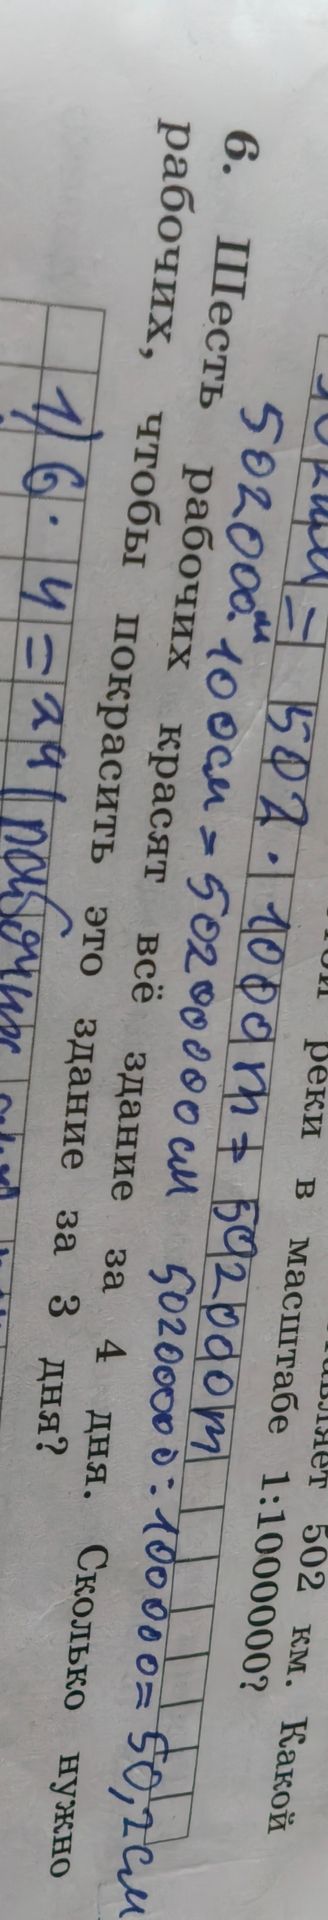 реки в масштабе 1:1000000?
502 км. Какой
= 502 · 1000 m = 502000 m
502000 м · 100 см = 50200000 см 50200000 : 1000000 = 50,2 см
6. Шесть рабочих красят всё здание за 4 дня. Сколько нужно
рабочих, чтобы покрасить это здание за 3 дня?
1) 6 · 4 = 24 (